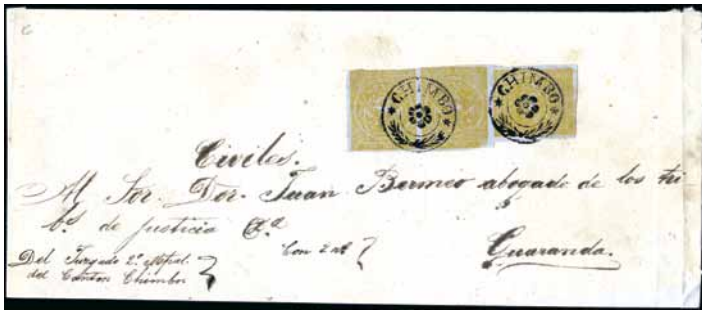 CHIMBO CHIMBO
Civiles.
Al Sor. Dor. Juan Bermeo abogado de los tri
de justicia
Con 2 Guaranda.
Del Juzgado 2º
del Canton Chimbo